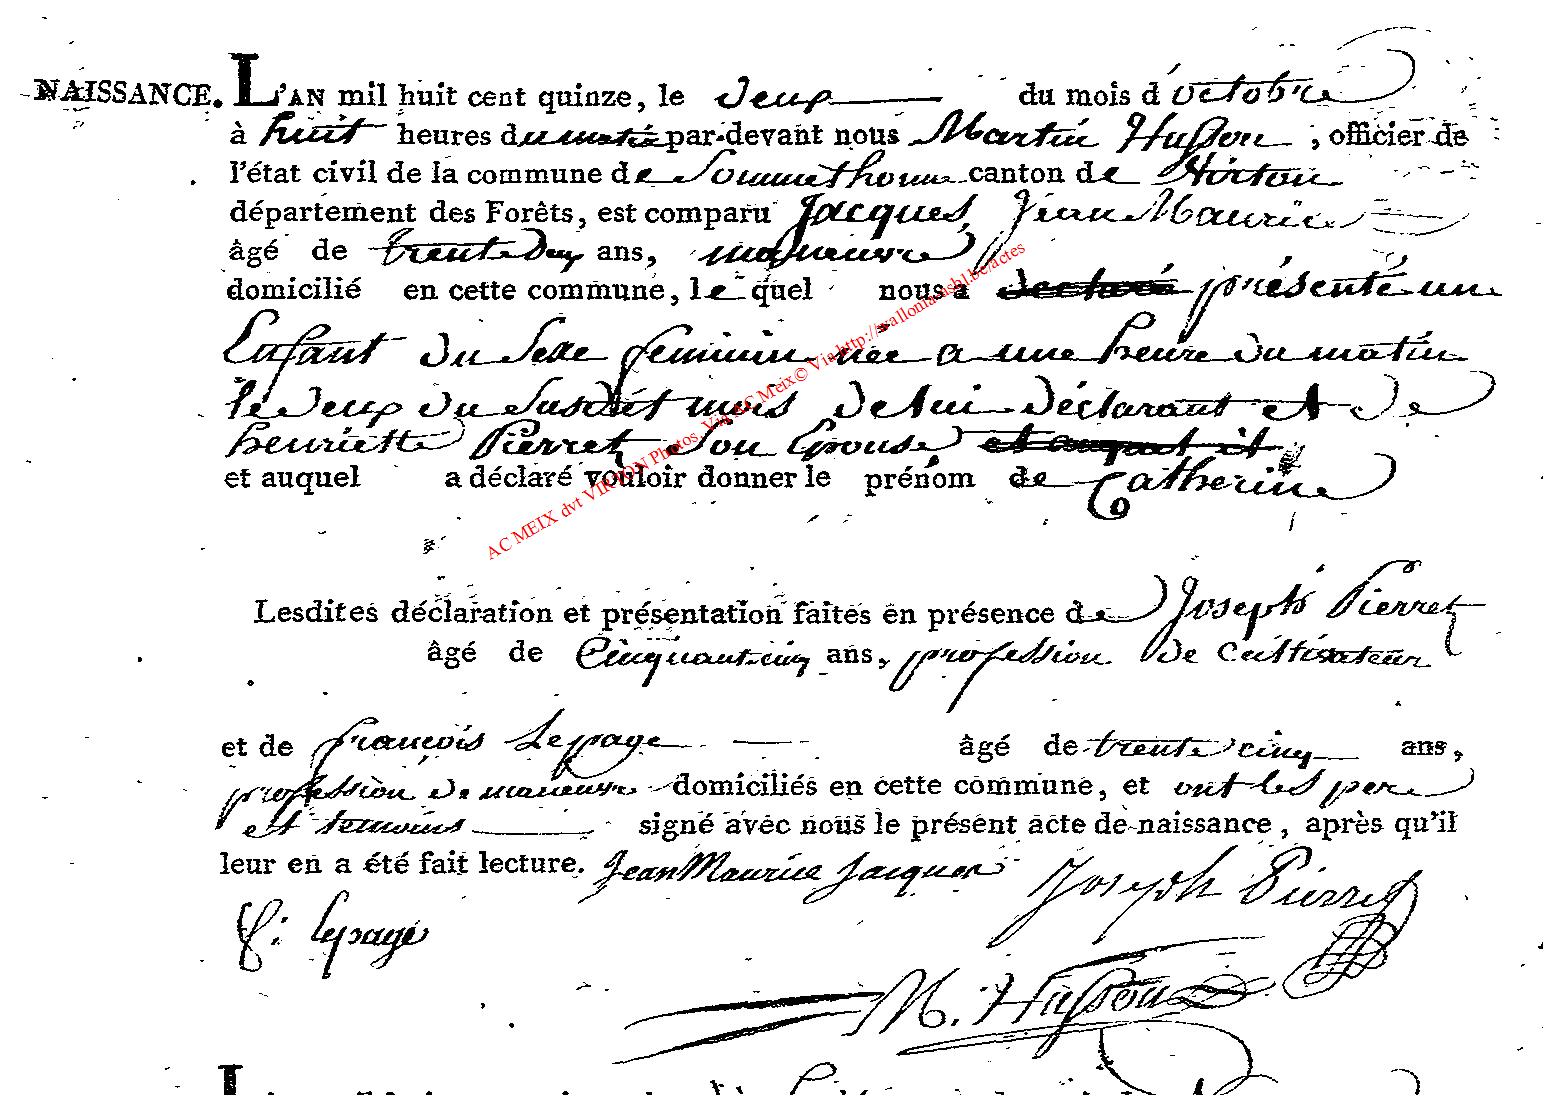 NAISSANCE. L'AN mil huit cent quinze, le deux du mois d'octobre
à huit heures du matin par-devant nous Martin Husson, officier de
l'état civil de la commune de Sommethonne canton de Virton
département des Forêts, est comparu Jacques, Jean Maurice
âgé de trente deux ans, manœuvre
domicilié en cette commune, lequel nous a déclaré présenté un
Enfant du Sexe feminin née a une heure du matin
le deux du susdit mois de lui déclarant et de
henriette Pierret son Epouse et auquel il
et auquel a déclaré vouloir donner le prénom de Catherine
AC MEIX dvt VIRTON Photos Via AC Meix© Via http://wallonia.asbl.be/actes
Lesdites déclaration et présentation faites en présence de Joseph Pierret
âgé de Cinquante cinq ans, profession de Cultivateur
et de françois Lepage âgé de trente cinq ans,
profession de manœuvre domiciliés en cette commune, et ont les pere
et temoins signé avec nous le présent acte de naissance, après qu'il
leur en a été fait lecture. Jean Maurice Jacques Joseph Pierret
f: lepage
M. Husson